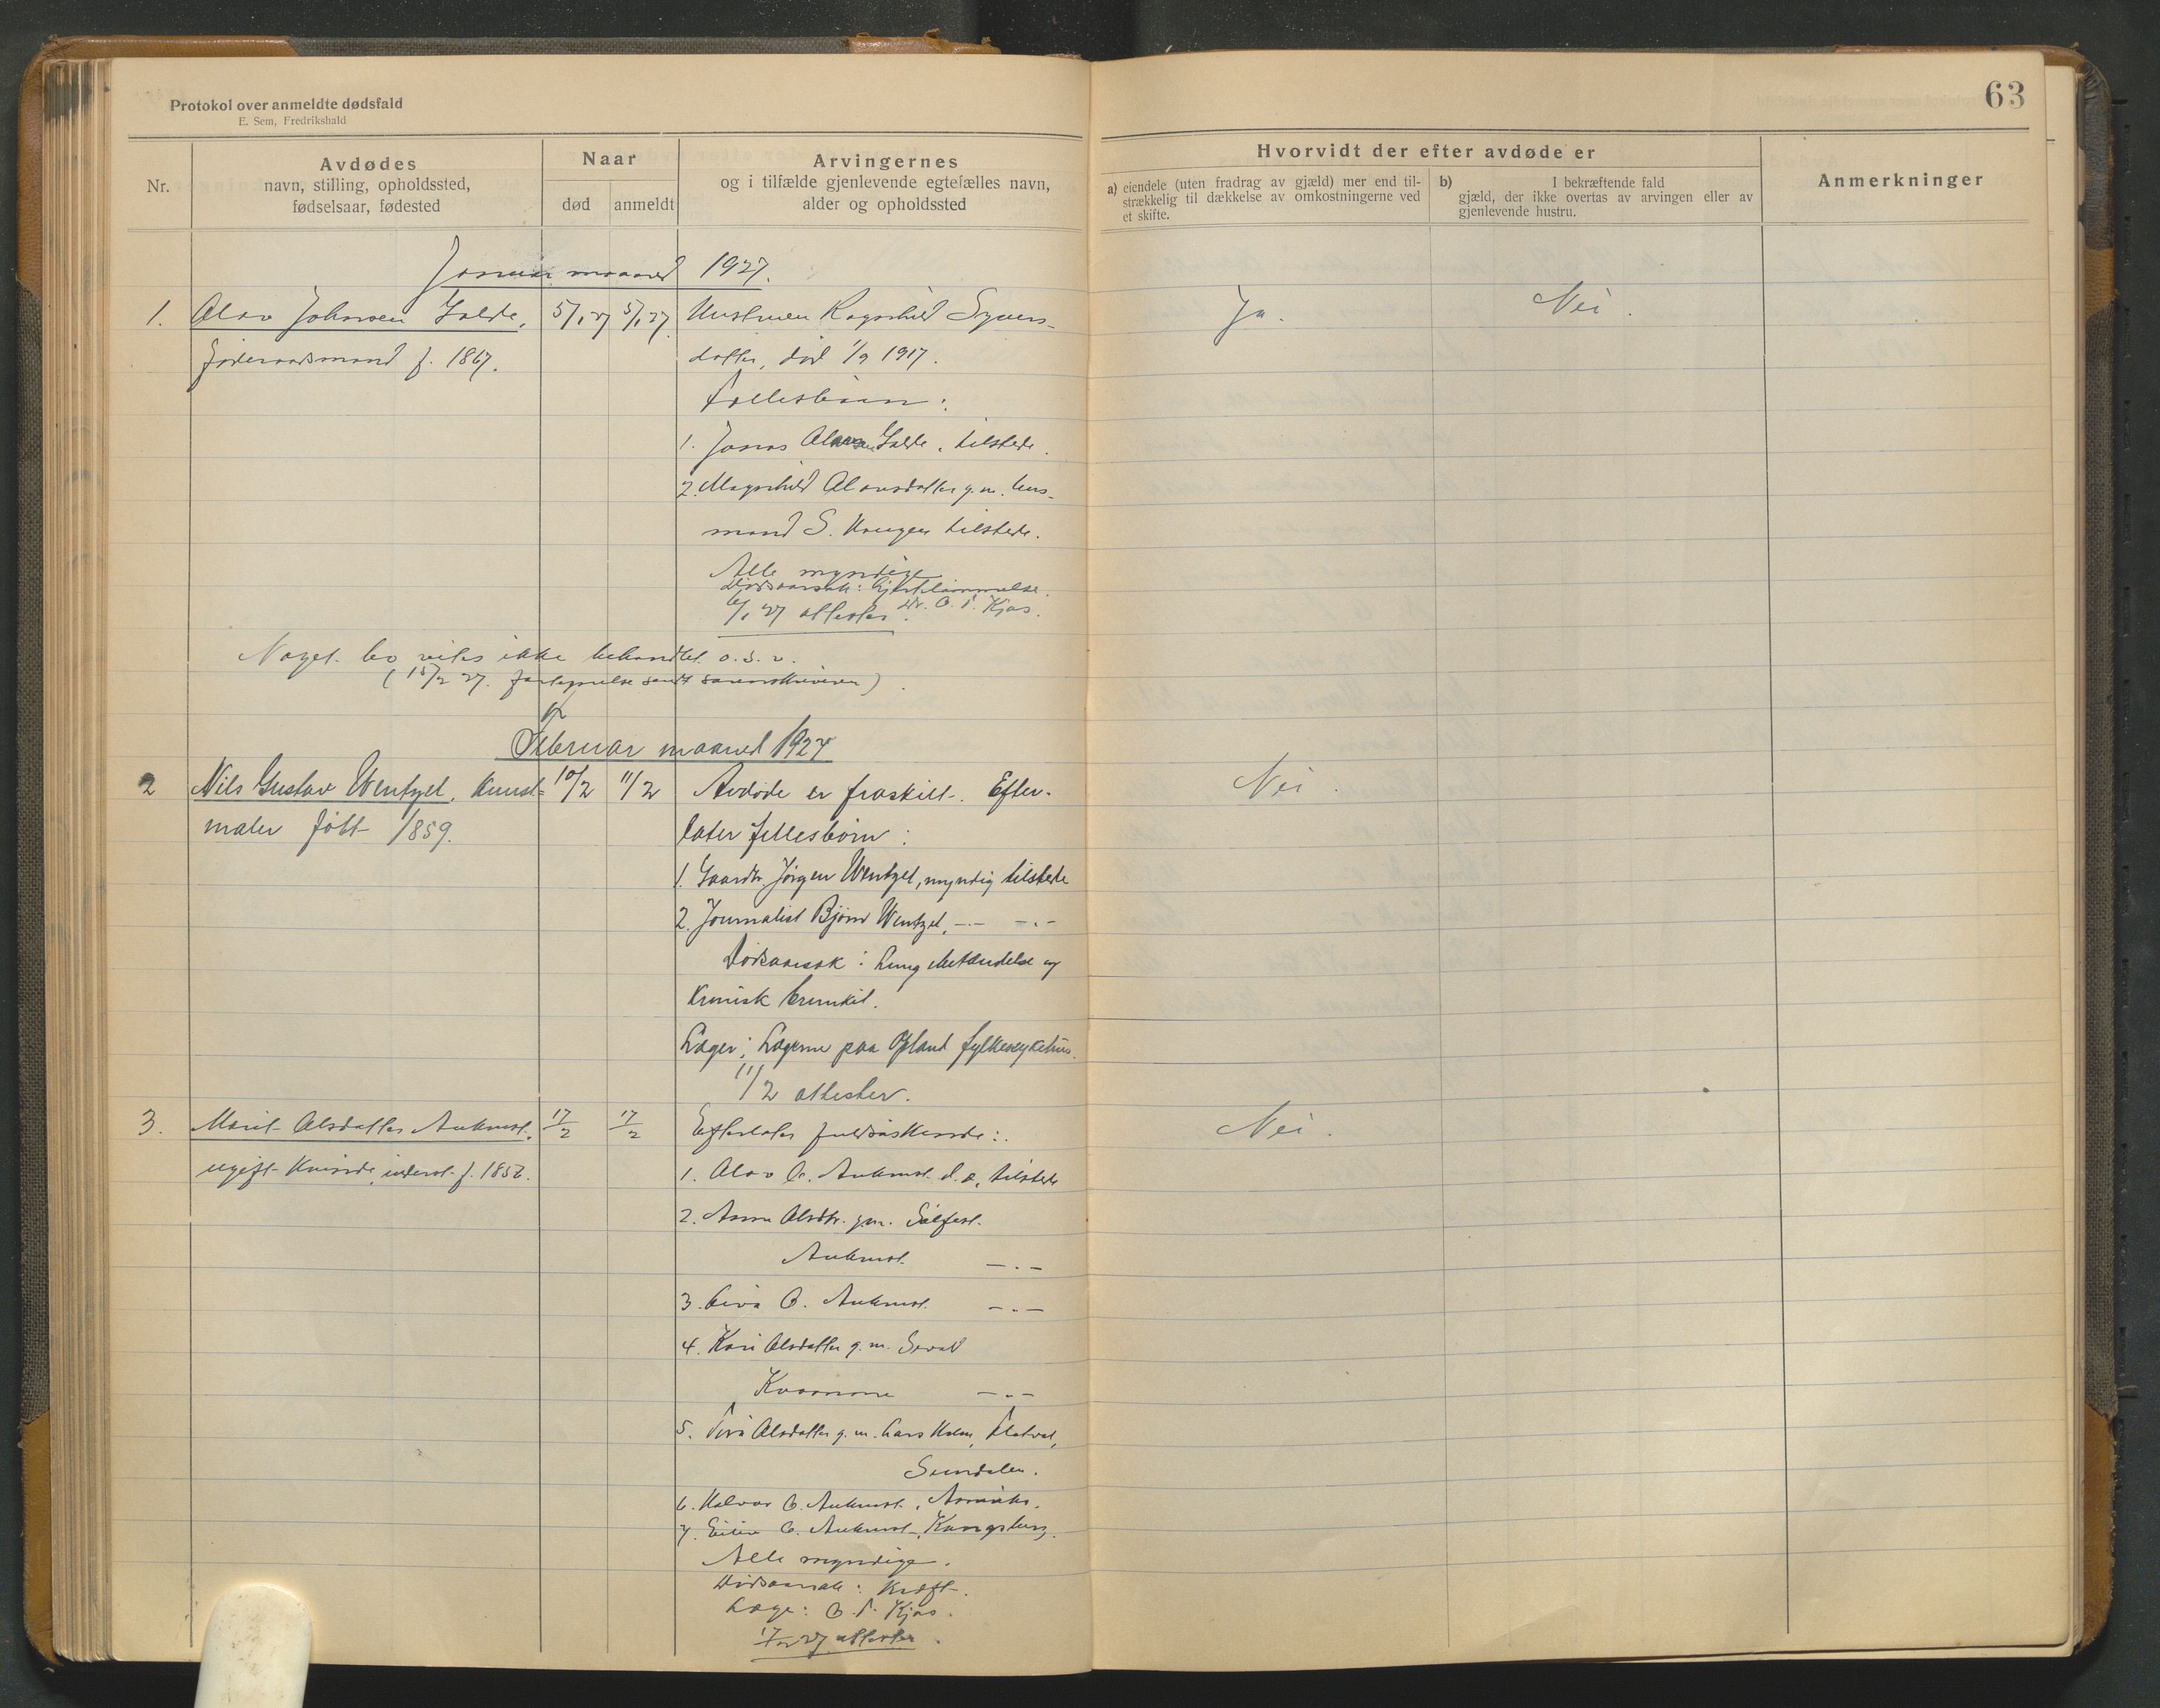 Protokol over anmeldte dødsfald
E. Sem, Fredrikshald
63
Nr.
Avdødes
navn, stilling, opholdssted,
fødselsaar, fødested
Naar
død
anmeldt
Arvingernes
og i tilfælde gjenlevende egtefælles navn,
alder og opholdssted
Hvorvidt der efter avdøde er
a) eiendele (uten fradrag av gjæld) mer end til-
strækkelig til dækkelse av omkostningerne ved
et skifte.
b) I bekræftende fald
gjæld, der ikke overtas av arvingen eller av
gjenlevende hustru.
Anmerkninger
Januar maaned 1927.
1. Olav Johnsen Galde, 5/1 27 5/1 27. Hustruen Ragnhild Syvers-
Ja. Nei.
føderaadsmand f. 1867. datter, død 1/9 1917.
Fællesbarn:
1. Jonas Galde, tilstede.
2. Magnhild Olavsdatter g.m. hus-
mand S. Haugen tilstede.
Alle myndige
Dødsaarsak: Hjertelammelse.
6/1 27 attester. Dr. O. T. Kjos.
Noget bo vites ikke behandlet o.s.v.
(15/2 27. fortegnelse sendt sorenskriveren)
Februar maaned 1927
2 Nils Gustav Wentzel, Kunst- 10/2 11/2 Avdøde er fraskilt. Efter-
Nei.
maler født 1859. later fellesbørn:
1. Gaardbr. Jørgen Wentzel, myndig tilstede
2. Journalist Bjørn Wentzel, -.- -.-
Dødsaarsak: Lungebetændelse og
Kronisk bronkit.
Læger: Lægerne paa Opland fylkessykehus.
11/2 attester.
3. Marit Olsdatter Aukrust, 17/2 17/2 Efterlater fuldsøskende:
Nei.
ugift Kvinde, inderst f. 1856. 1. Olav O. Aukrust d.æ, tilstede
2. Anne Olsdtr. g.m. Sølfest
Aukrust -.-
3. O. Aukrust -.-
4. Kari Olsdatter g.m.
-.-
5. Olsdatter g.m. Lars
Sundalen.
6. Halvor O. Aukrust, Amerika.
7. O. Aukrust, Kongsberg.
Alle myndige.
Dødsaarsak: Kræft.
Læge: O. T. Kjos.
17/2 27 attester.